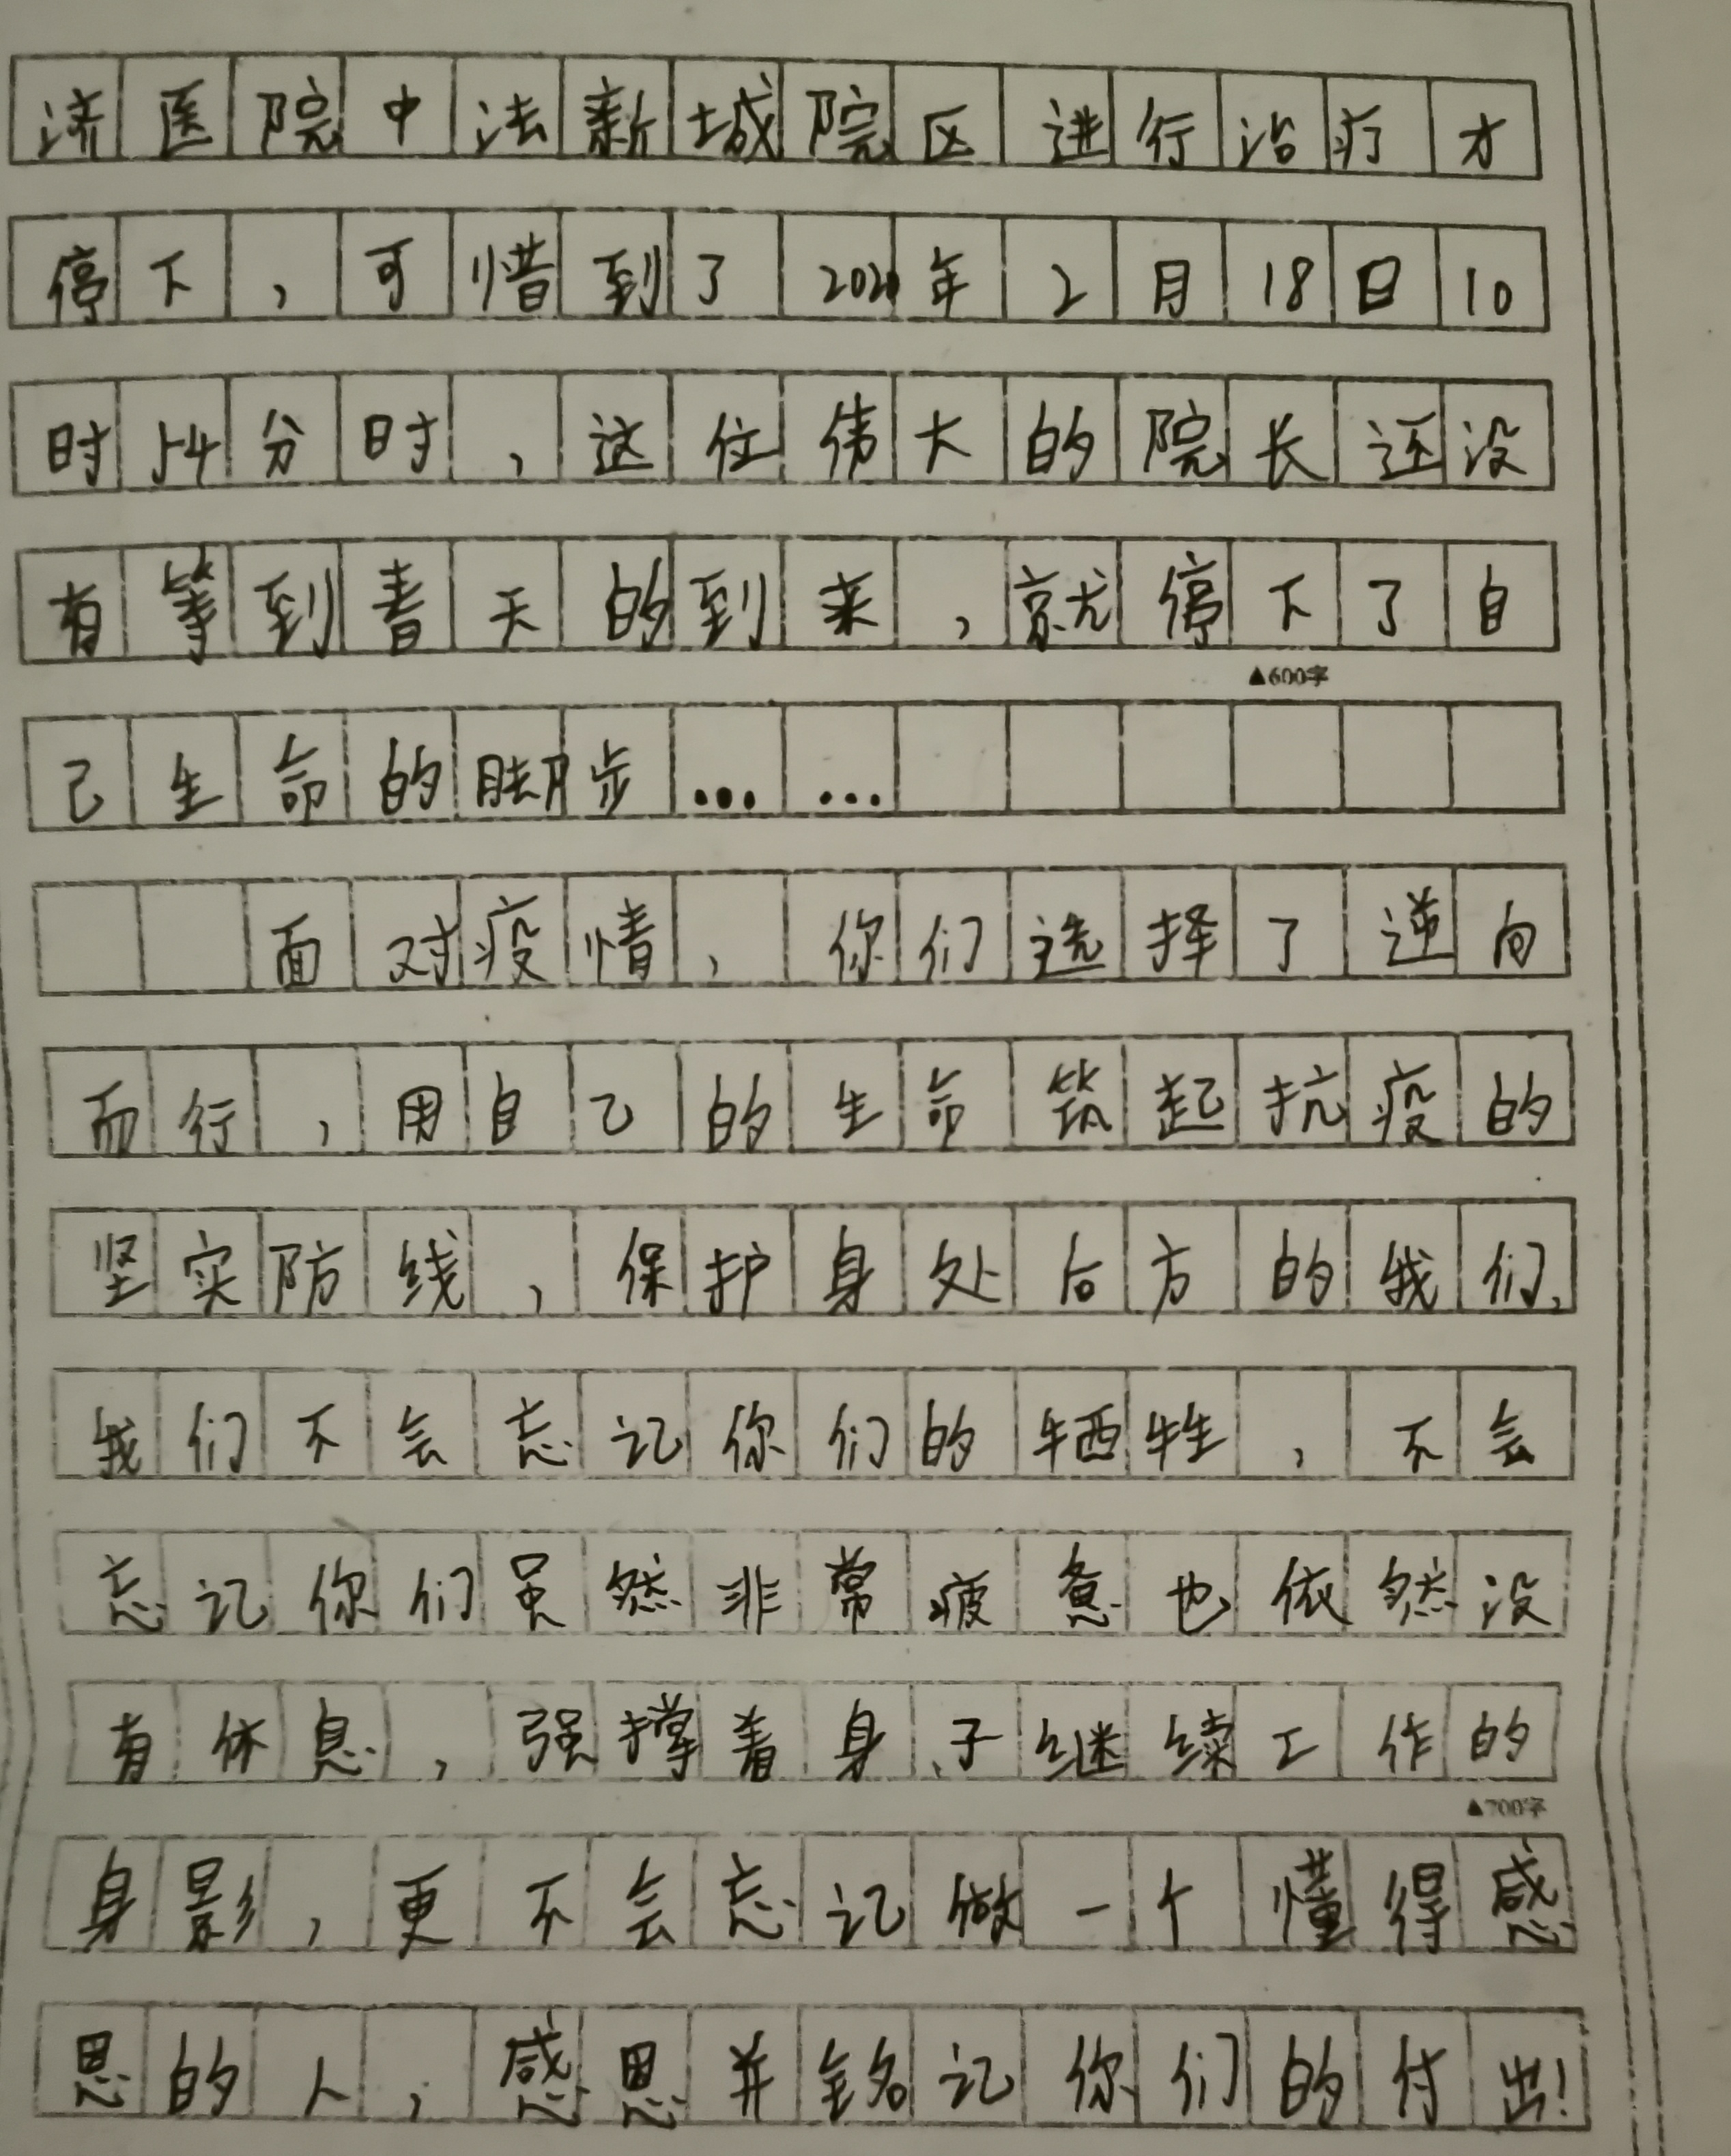 济医院中法新城院区进行治疗才
停下，可惜到了2020年2月18日10
时54分时，这位伟大的院长还没
有等到春天的到来，就停下了自
▲600字
己生命的脚步……
面对疫情，你们选择了逆向
而行，用自己的生命筑起抗疫的
坚实防线，保护身处后方的我们，
我们不会忘记你们的牺牲，不会
忘记你们虽然非常疲惫也依然没
有休息，强撑着身子继续工作的
▲700字
身影，更不会忘记做一个懂得感
恩的人，感恩并铭记你们的付出！